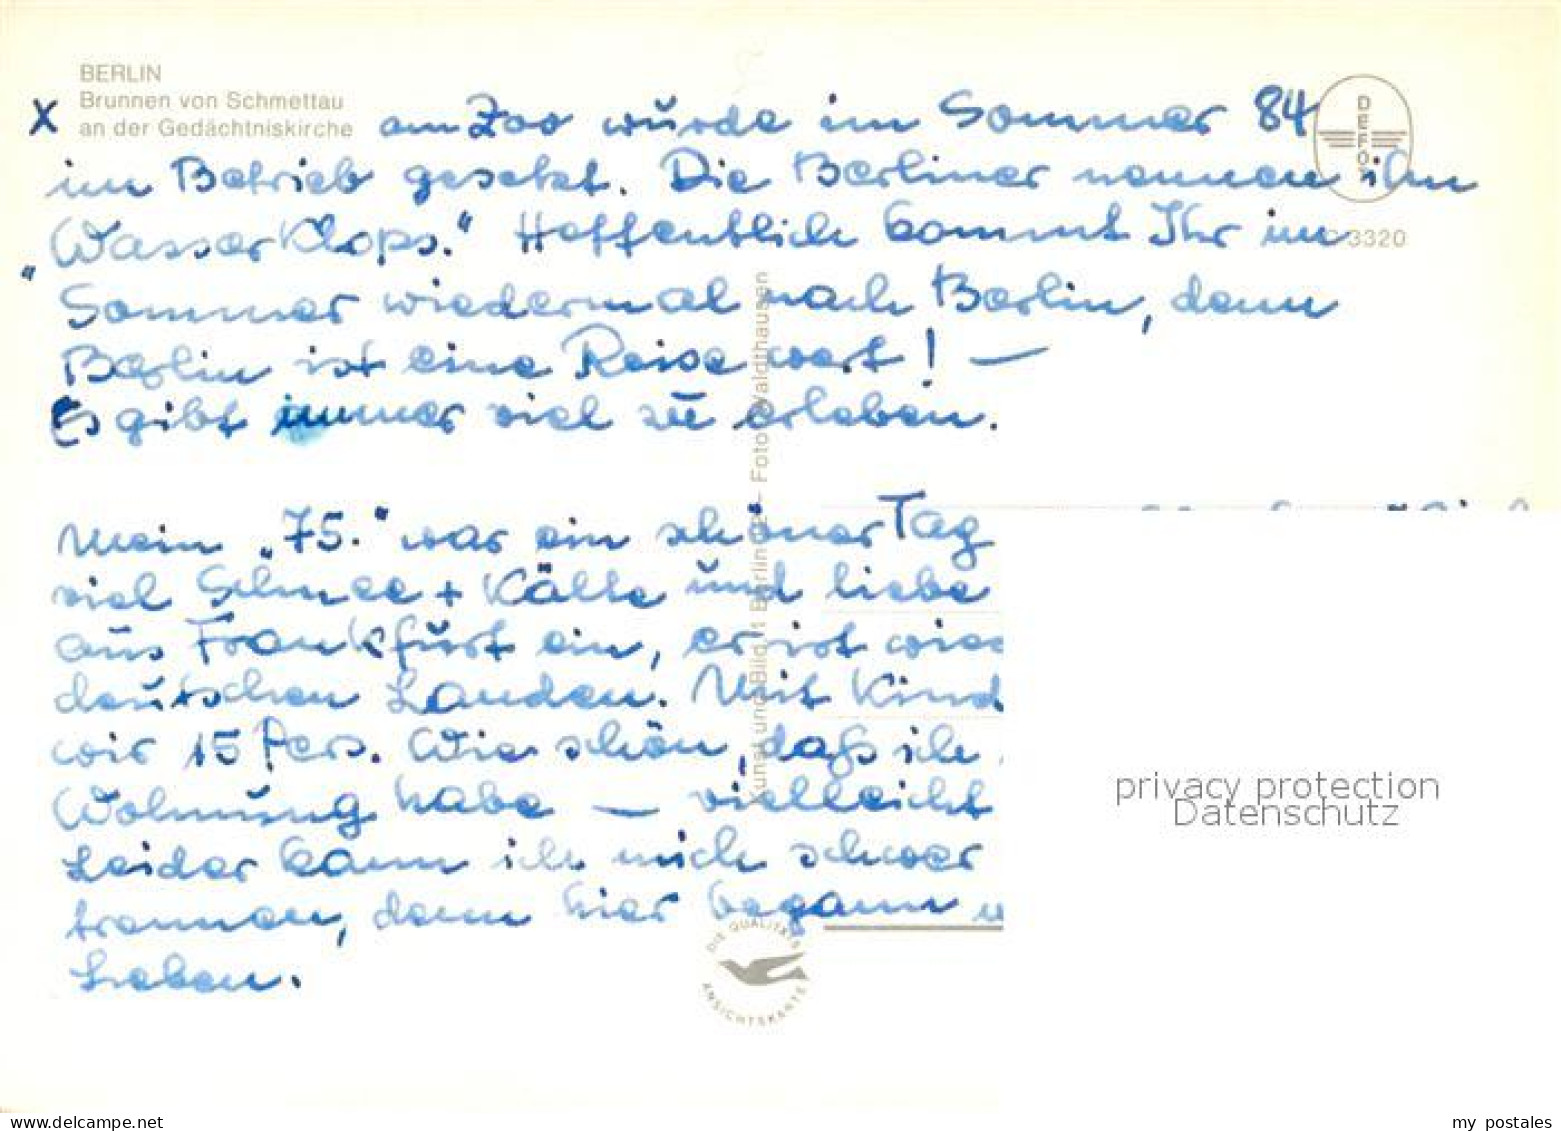 BERLIN
Brunnen von Schmettau
x an der Gedächtniskirche am Zoo wurde im Sommer 84
in Betrieb gesetzt. Die Berliner nennen ihn
"Wasserklops." Hoffentlich kommt Ihr im
Sommer wiedermal nach Berlin, denn
Berlin ist eine Reise wert! —
Es gibt immer viel zu erleben.
Mein „75." war ein schöner Tag
viel Schnee + Kälte und liebe
aus Frankfurt ein, er ist wied
deutschen Landen. Mit Kind
wir 15 Pers. Wie schön, daß ich
Wohnung habe — vielleicht
Leider kann ich mich schwer
trennen, denn hier begann u
Leben.
DEFOT
3320
Kunst und Bild, 1 Berlin – Foto Waldthausen
DIE QUALITÄTS
ANSICHTSKARTE
privacy protection
Datenschutz
delcampe.net
my_postales